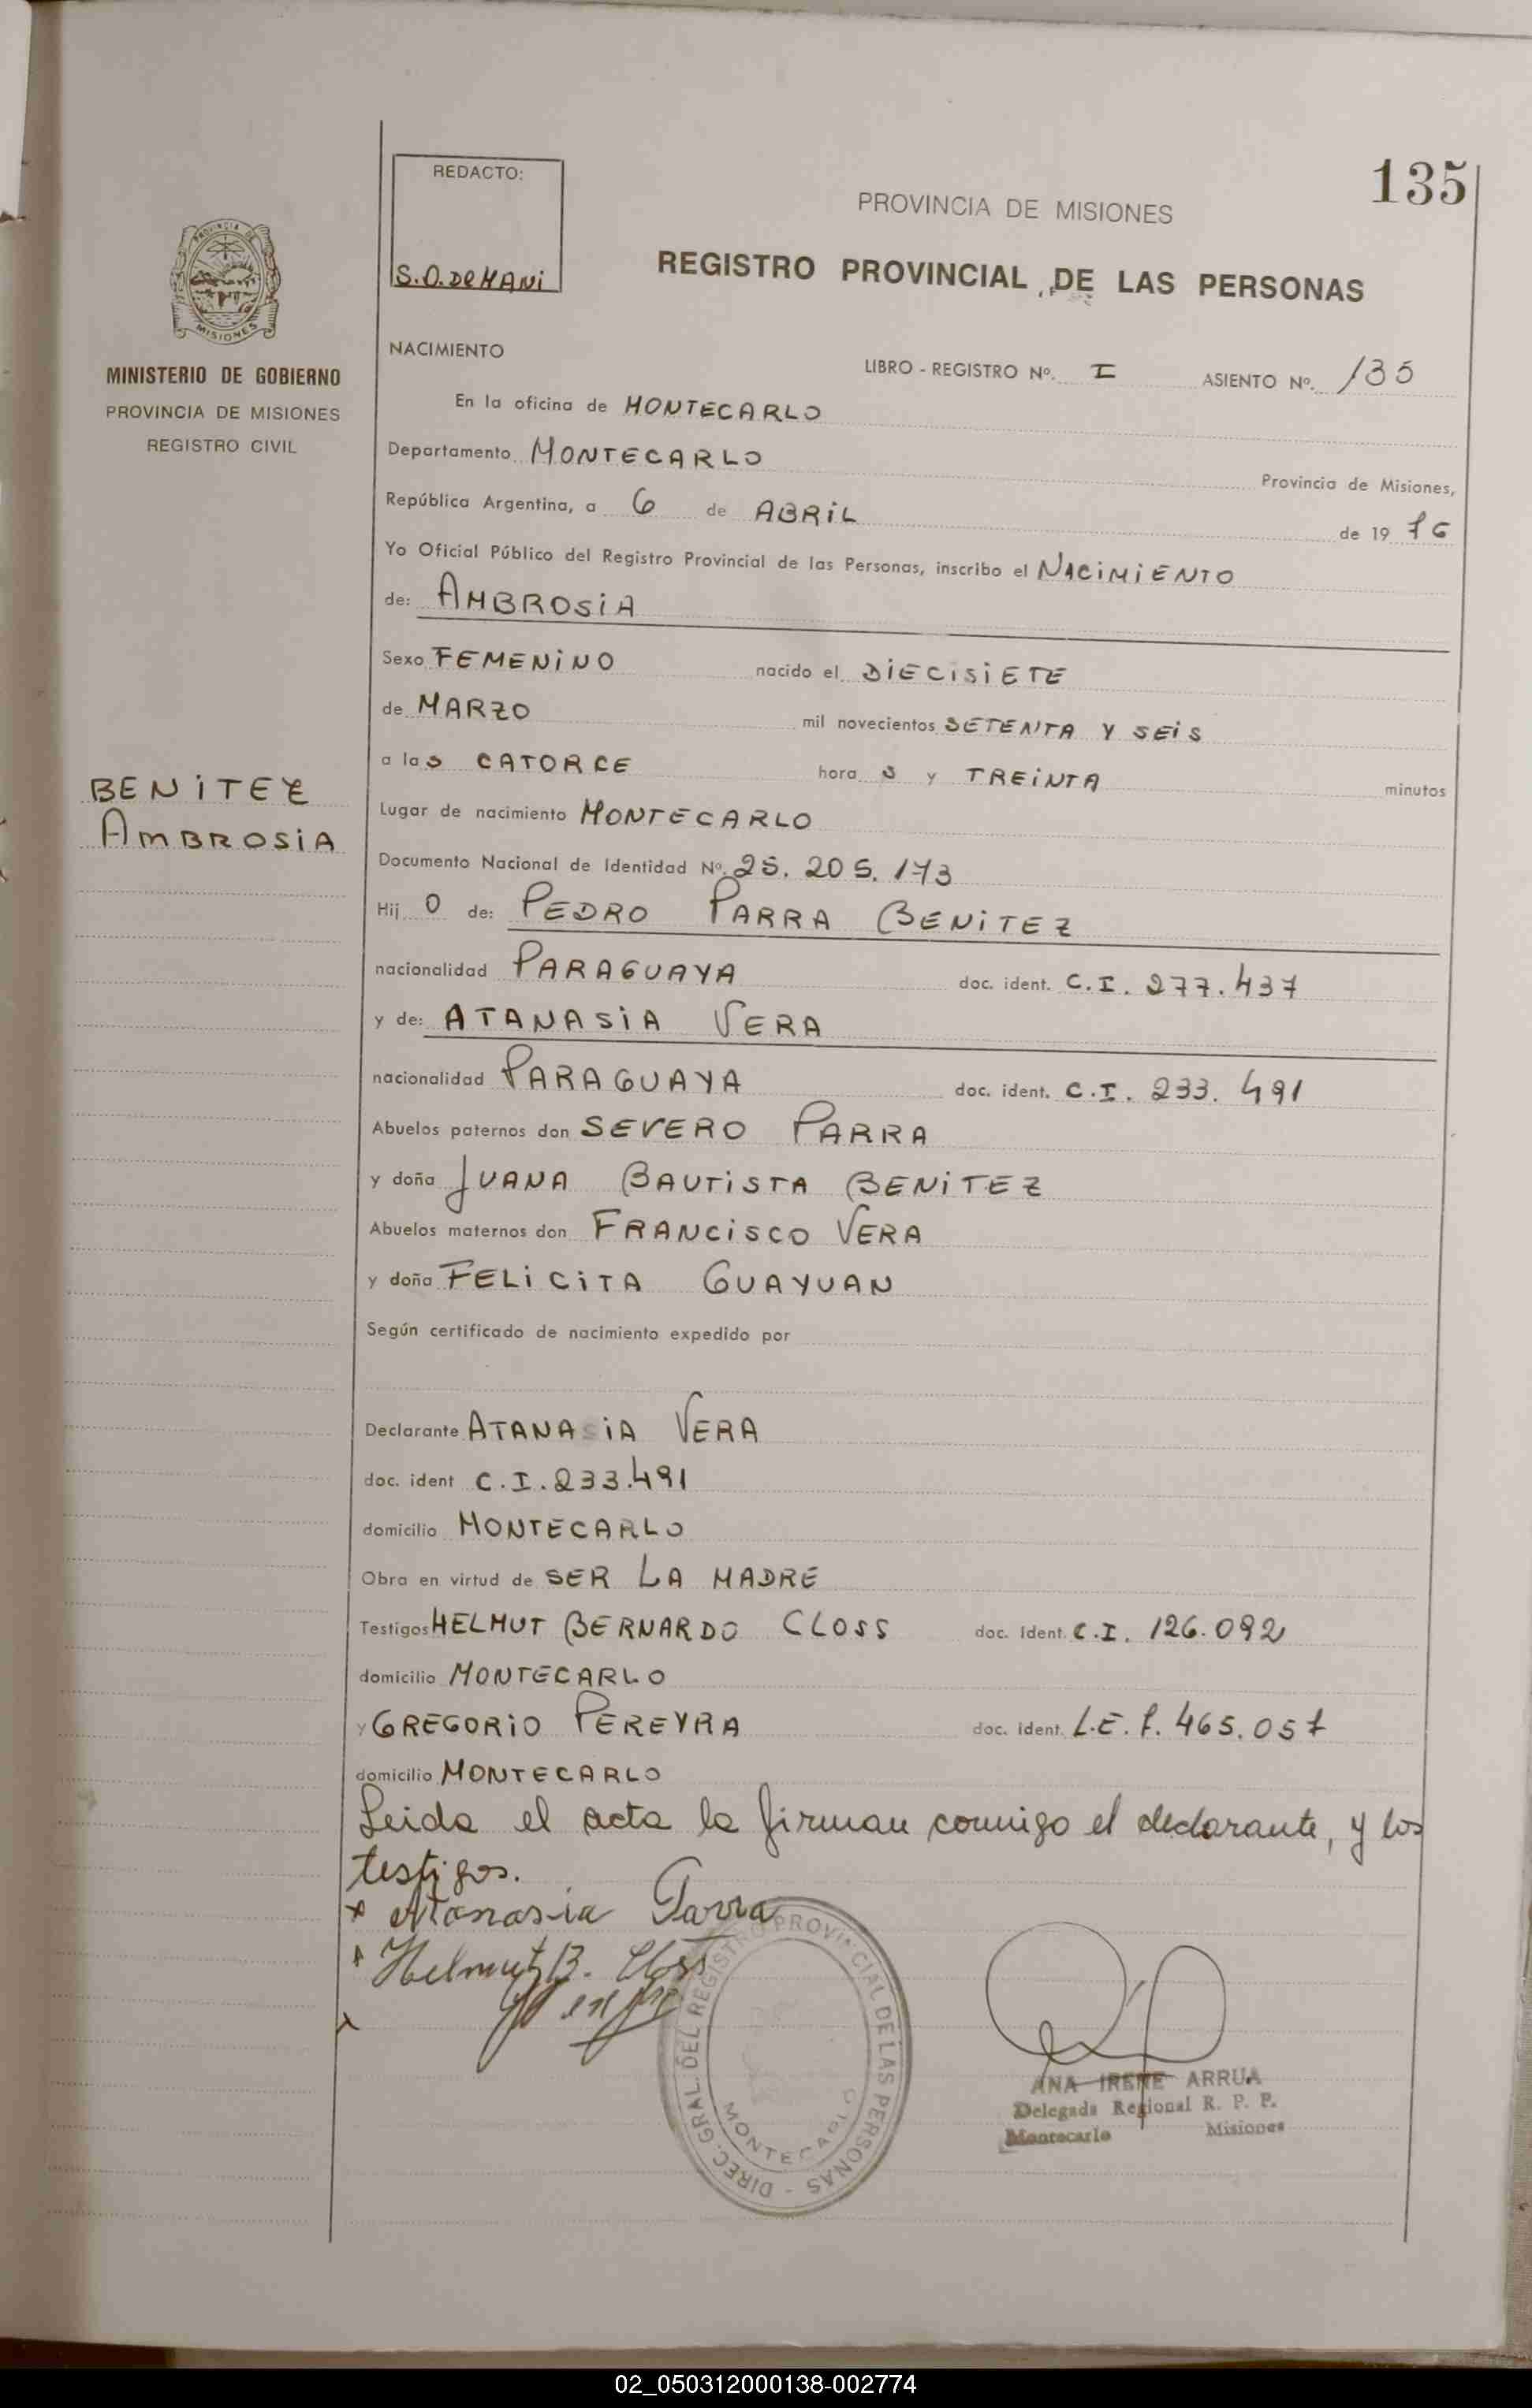 135
REDACTO:
S.O. DEMANi
PROVINCIA DE MISIONES
REGISTRO PROVINCIAL DE LAS PERSONAS
PROVINCIA DE
MISIONES
MINISTERIO DE GOBIERNO
PROVINCIA DE MISIONES
REGISTRO CIVIL
NACIMIENTO
LIBRO - REGISTRO Nº. I ASIENTO Nº. 135
En la oficina de MONTECARLO
Departamento MONTECARLO Provincia de Misiones,
República Argentina, a 6 de ABRiL de 19 76
Yo Oficial Público del Registro Provincial de las Personas, inscribo el NACiMiENTO
de: AMBROSiA
Sexo FEMENiNO nacido el DiECiSiETE
de MARZO mil novecientos SETENTA Y SEiS
a las CATORCE hora s y TREiNTA minutos
BENiTEZ
AMBROSiA
Lugar de nacimiento MONTECARLO
Documento Nacional de Identidad Nº. 25. 205. 173
Hij O de: PEDRO PARRA BENiTEZ
nacionalidad PARAGUAYA doc. ident. C.I. 277.437
y de: ATANASiA VERA
nacionalidad PARAGUAYA doc. ident. C.I. 233. 491
Abuelos paternos don SEVERO PARRA
y doña JUANA BAUTiSTA BENiTEZ
Abuelos maternos don FRANCiSCO VERA
y doña FELiCiTA GUAYUAN
Según certificado de nacimiento expedido por
Declarante ATANASiA VERA
doc. ident C.I. 233.491
domicilio MONTECARLO
Obra en virtud de SER LA MADRE
Testigos HELMUT BERNARDO CLOSS doc. Ident. C.I. 126.092
domicilio MONTECARLO
y GREGORiO PEREYRA doc. Ident. L.E. 7. 465.057
domicilio MONTECARLO
Leida el acta la firman comigo el declarante, y los
testigos.
x Atanasia Parra
x Helmut B. Closs
x
DIREC. GRAL. DEL REGISTRO PROVINCIAL DE LAS PERSONAS -
MONTECARLO
ANA IRENE ARRUA
Delegada Regional R. P. P.
Montecarlo Misiones
02_050312000138-002774